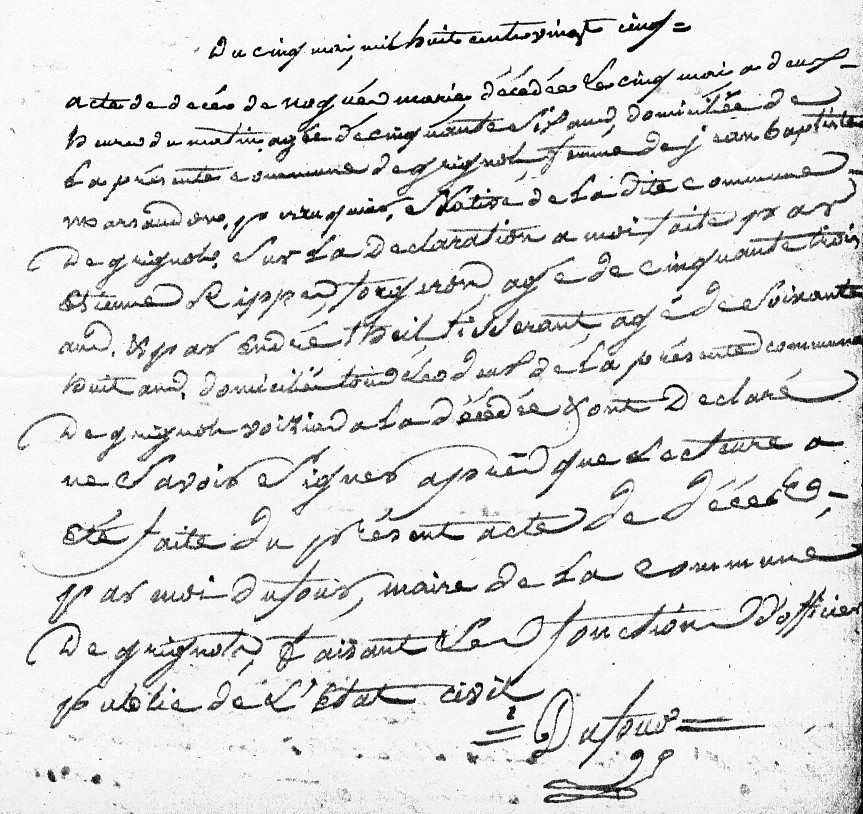 Du cinq mai, mil huit cent vingt cinq =
acte de decés de noguéd marie, décédée le cinq mai a deux
heure du matin, agée de cinquante six ans, domiciliée de
la présente commune de grignol femme de jean baptiste
marsaudon, perruquier, & native de la dite commune
De grignol, sur la Declaration a moi faite par
etienne Ripper, forgeron, agé de cinquante trois
ans, & par andré theil tisserant, agé de soixante
huit ans, domicilié tous les deux de la présente commune
De grignol voisins a la décédée & ont Declaré
ne Savoir Signer après que lecture a
été faite du présent acte de décés
par moi dufour, maire de la commune
De grignol, faisant les fonction d'officier
public de L'état civil
Dufour